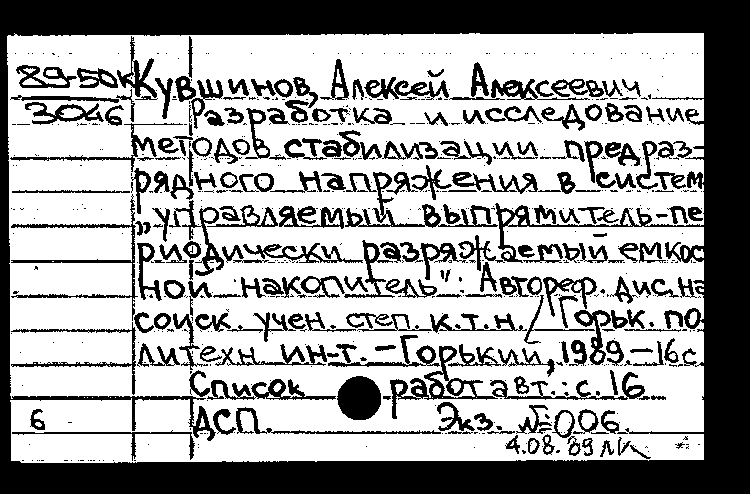 89-50к Кувшинов, Алексей Алексеевич.
3046 Разработка и исследование
методов стабилизации предраз-
рядного напряжения в систем
„управляемый выпрямитель-пе
риодически разряжаемый емкос
ной накопитель": Автореф. дис. на
соиск. учен. степ. к.т.н. / Горьк. по-
литехн ин-т. – Горький, 1989. – 16 с.
Список работ авт.: с. 16
6 ДСП. Экз. № 006.
4.08.89